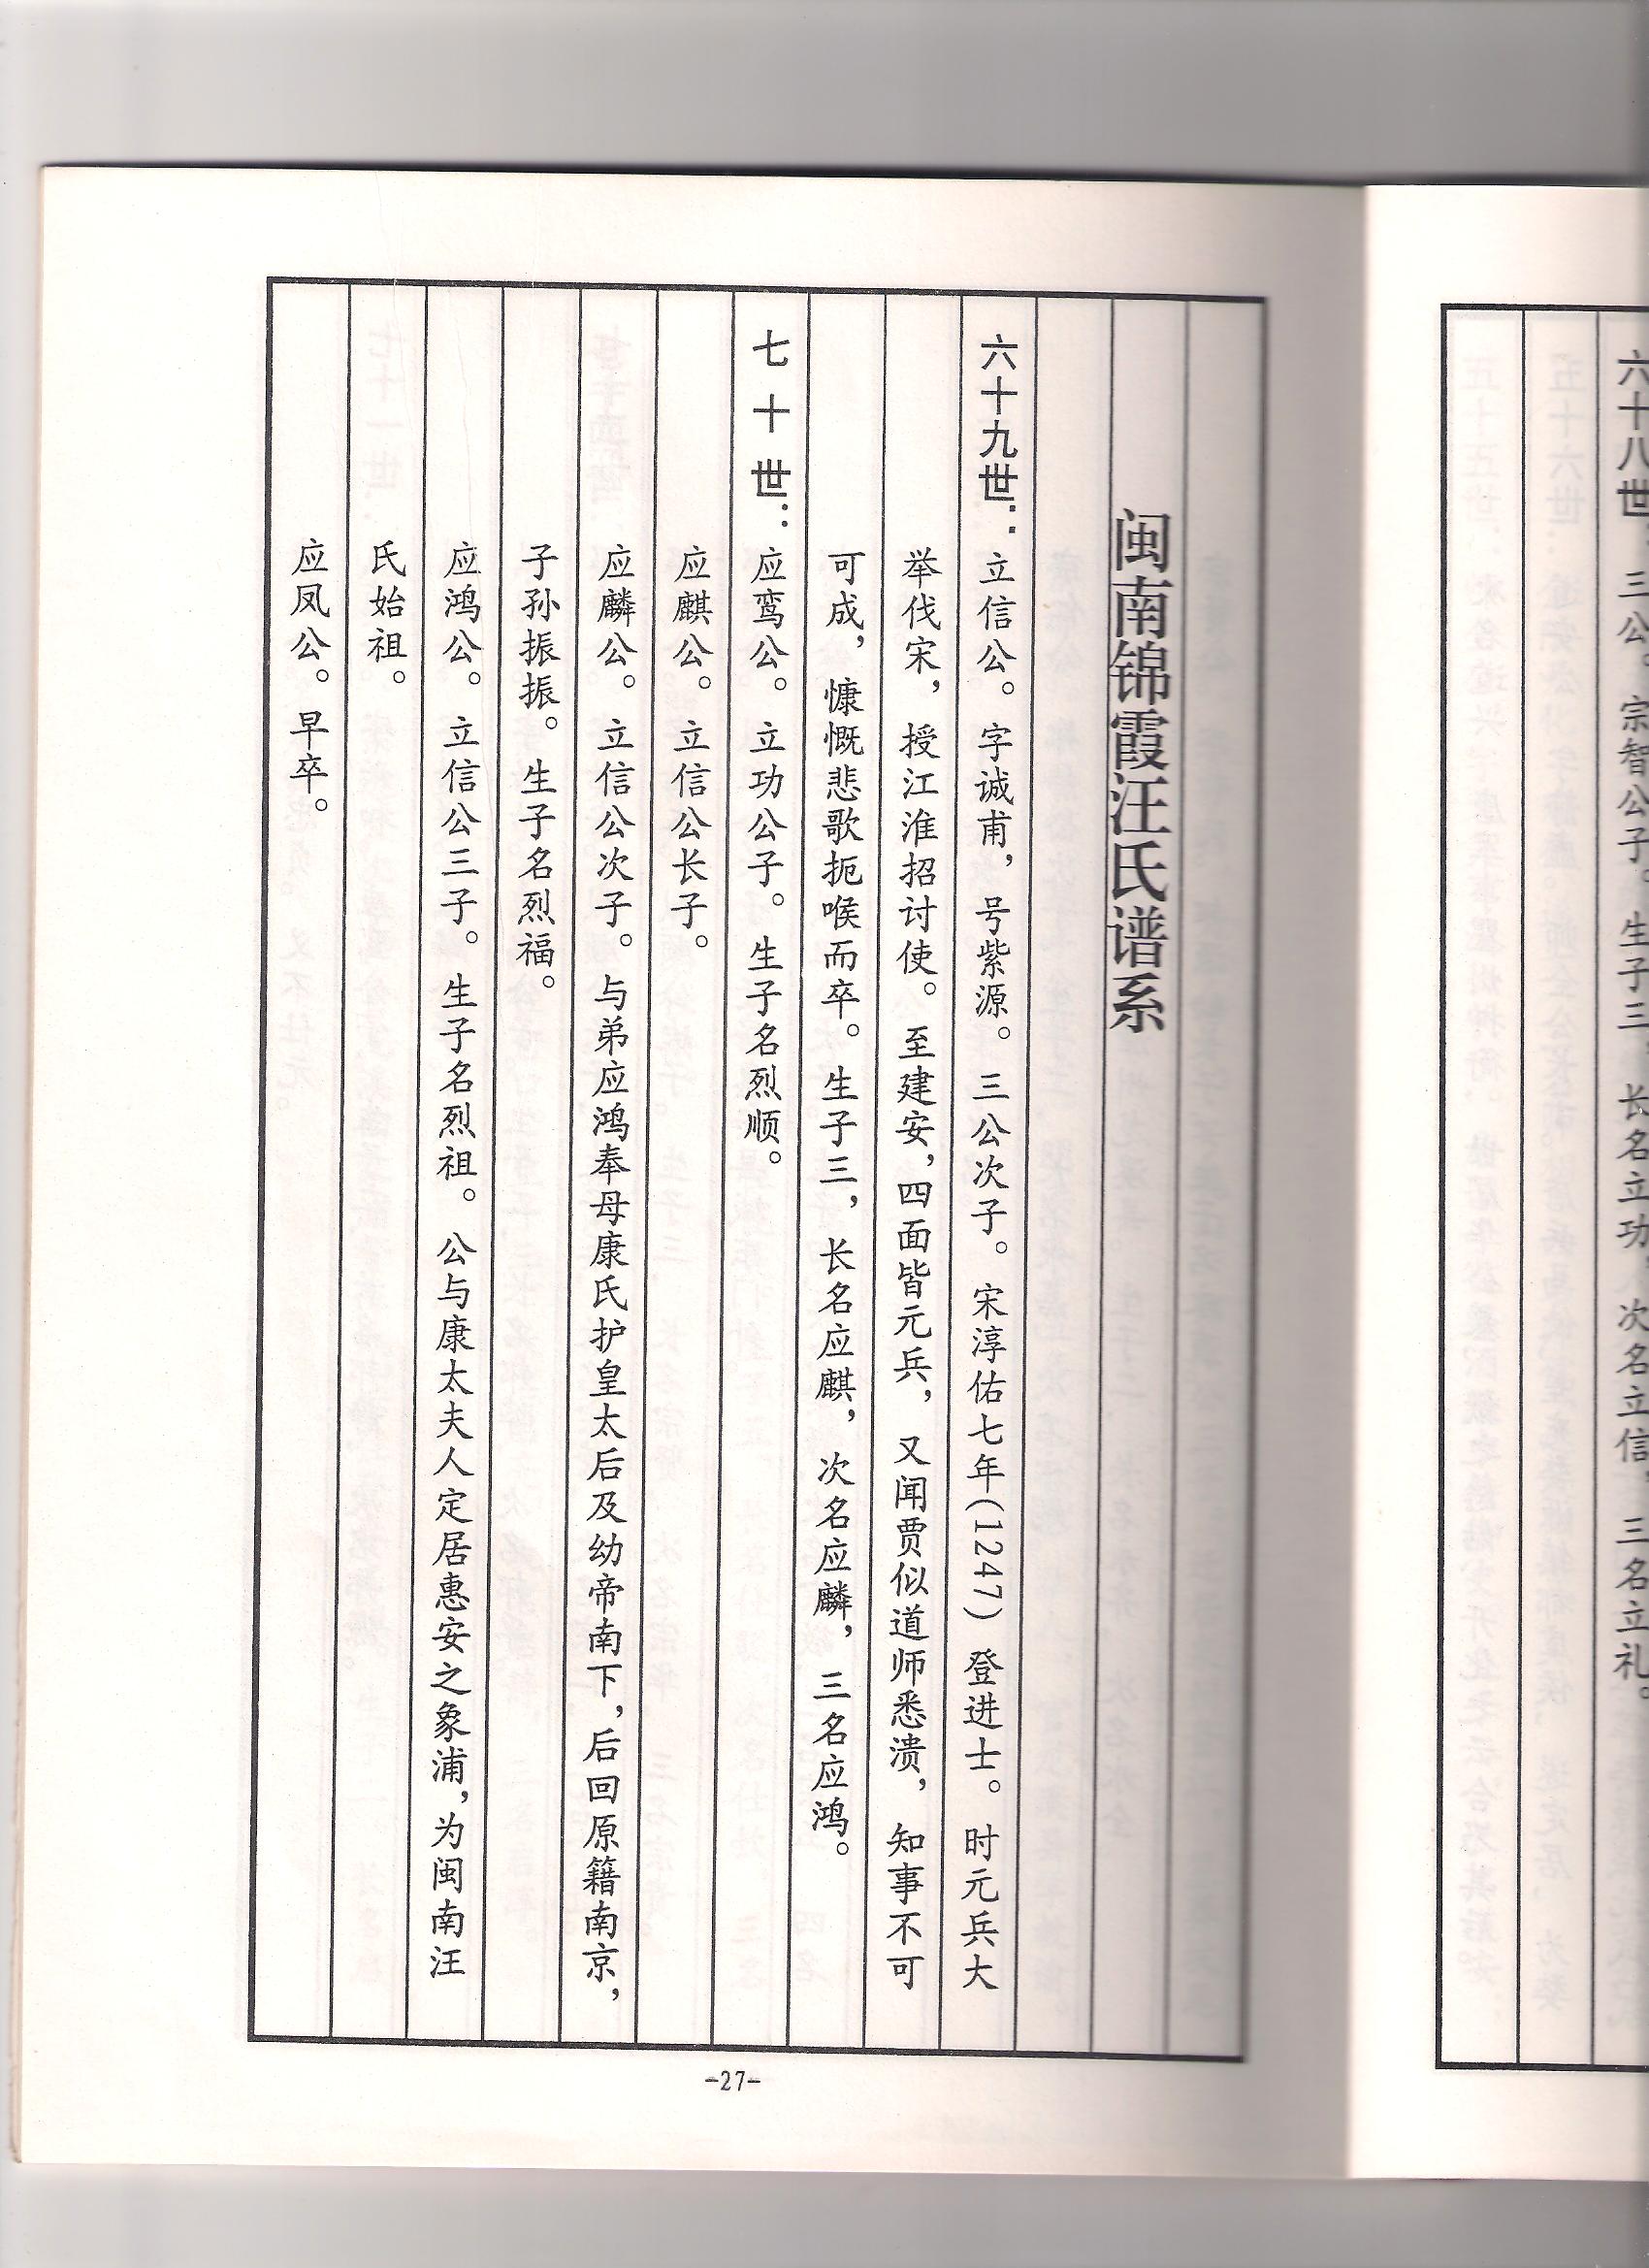 六十八世：三公。宗智公子。生子三，长名立功，次名立信，三名立礼。
闽南锦霞汪氏谱系
六十九世：立信公。字诚甫，号紫源。三公次子。宋淳佑七年(1247)登进士。时元兵大
举伐宋，授江淮招讨使。至建安，四面皆元兵，又闻贾似道师悉溃，知事不可
可成，慷慨悲歌扼喉而卒。生子三，长名应麒，次名应麟，三名应鸿。
七十世：应鸾公。立功公子。生子名烈顺。
应麒公。立信公长子。
应麟公。立信公次子。与弟应鸿奉母康氏护皇太后及幼帝南下，后回原籍南京，
子孙振振。生子名烈福。
应鸿公。立信公三子。生子名烈祖。公与康太夫人定居惠安之象浦，为闽南汪
氏始祖。
应凤公。早卒。
-27-